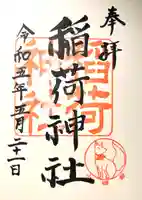 奉拝
稲荷神社
令和五年五月二十一日
稲荷
神社